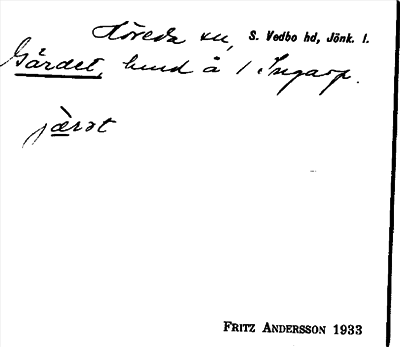 Höreda sn, S. Vedbo hd, Jönk. l.
Gärdet, hmd å 1 Ingarp.
jæ̀rət
FRITZ ANDERSSON 1933